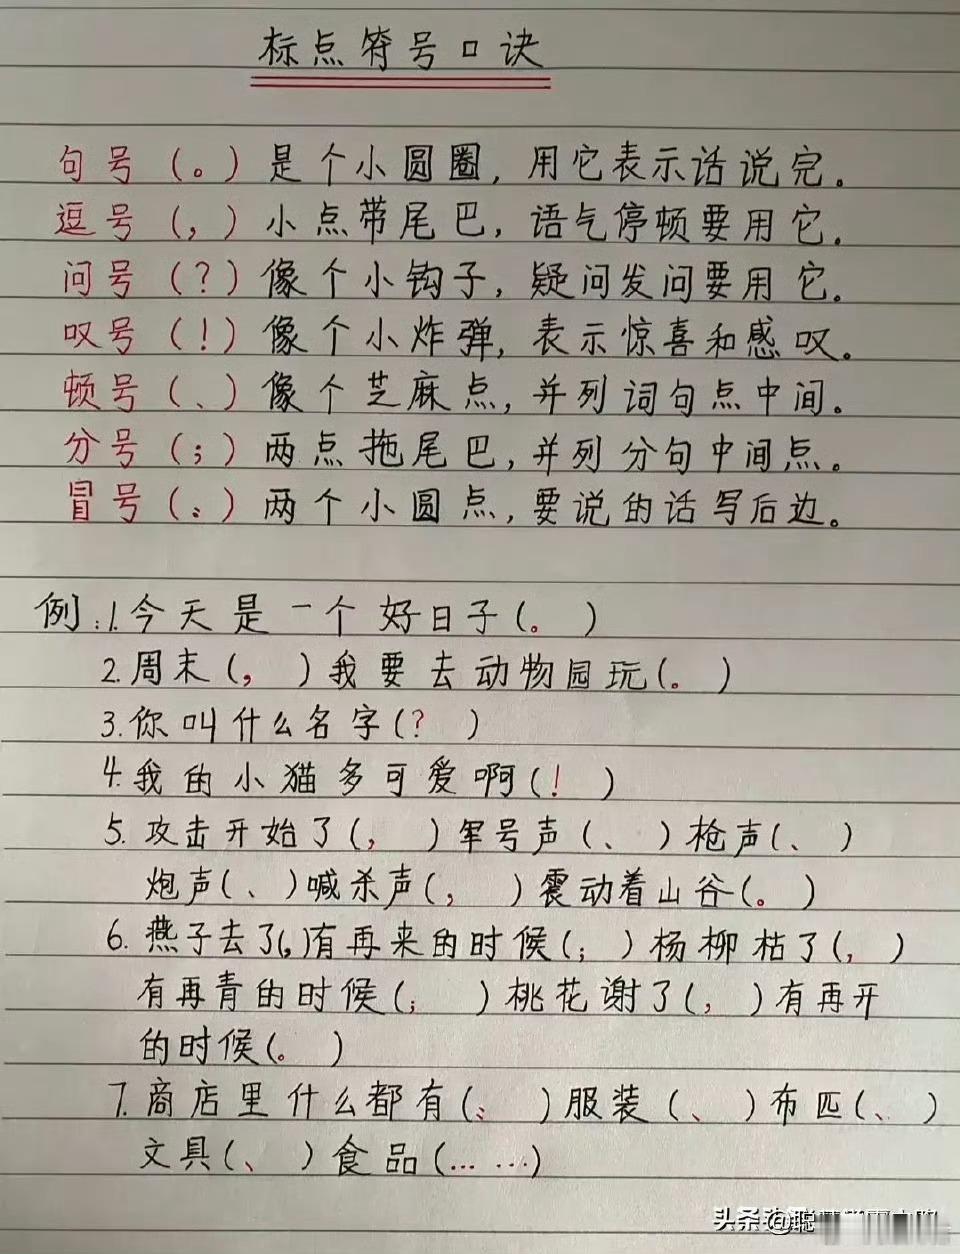 标点符号口诀
句号（。）是个小圆圈，用它表示话说完。
逗号（，）小点带尾巴，语气停顿要用它。
问号（？）像个小钩子，疑问发问要用它。
叹号（！）像个小炸弹，表示惊喜和感叹。
顿号（、）像个芝麻点，并列词句点中间。
分号（；）两点拖尾巴，并列分句中间点。
冒号（：）两个小圆点，要说的话写后边。
例：1.今天是一个好日子（。）
2.周末（，）我要去动物园玩（。）
3.你叫什么名字（？）
4.我的小猫多可爱啊（！）
5.攻击开始了（，）军号声（、）枪声（、）
炮声（、）喊杀声（，）震动着山谷（。）
6.燕子去了（，）有再来的时候（；）杨柳枯了（，）
有再青的时候（；）桃花谢了（，）有再开
的时候（。）
7.商店里什么都有（：）服装（、）布匹（、）
文具（、）食品（……）
头条 @聪